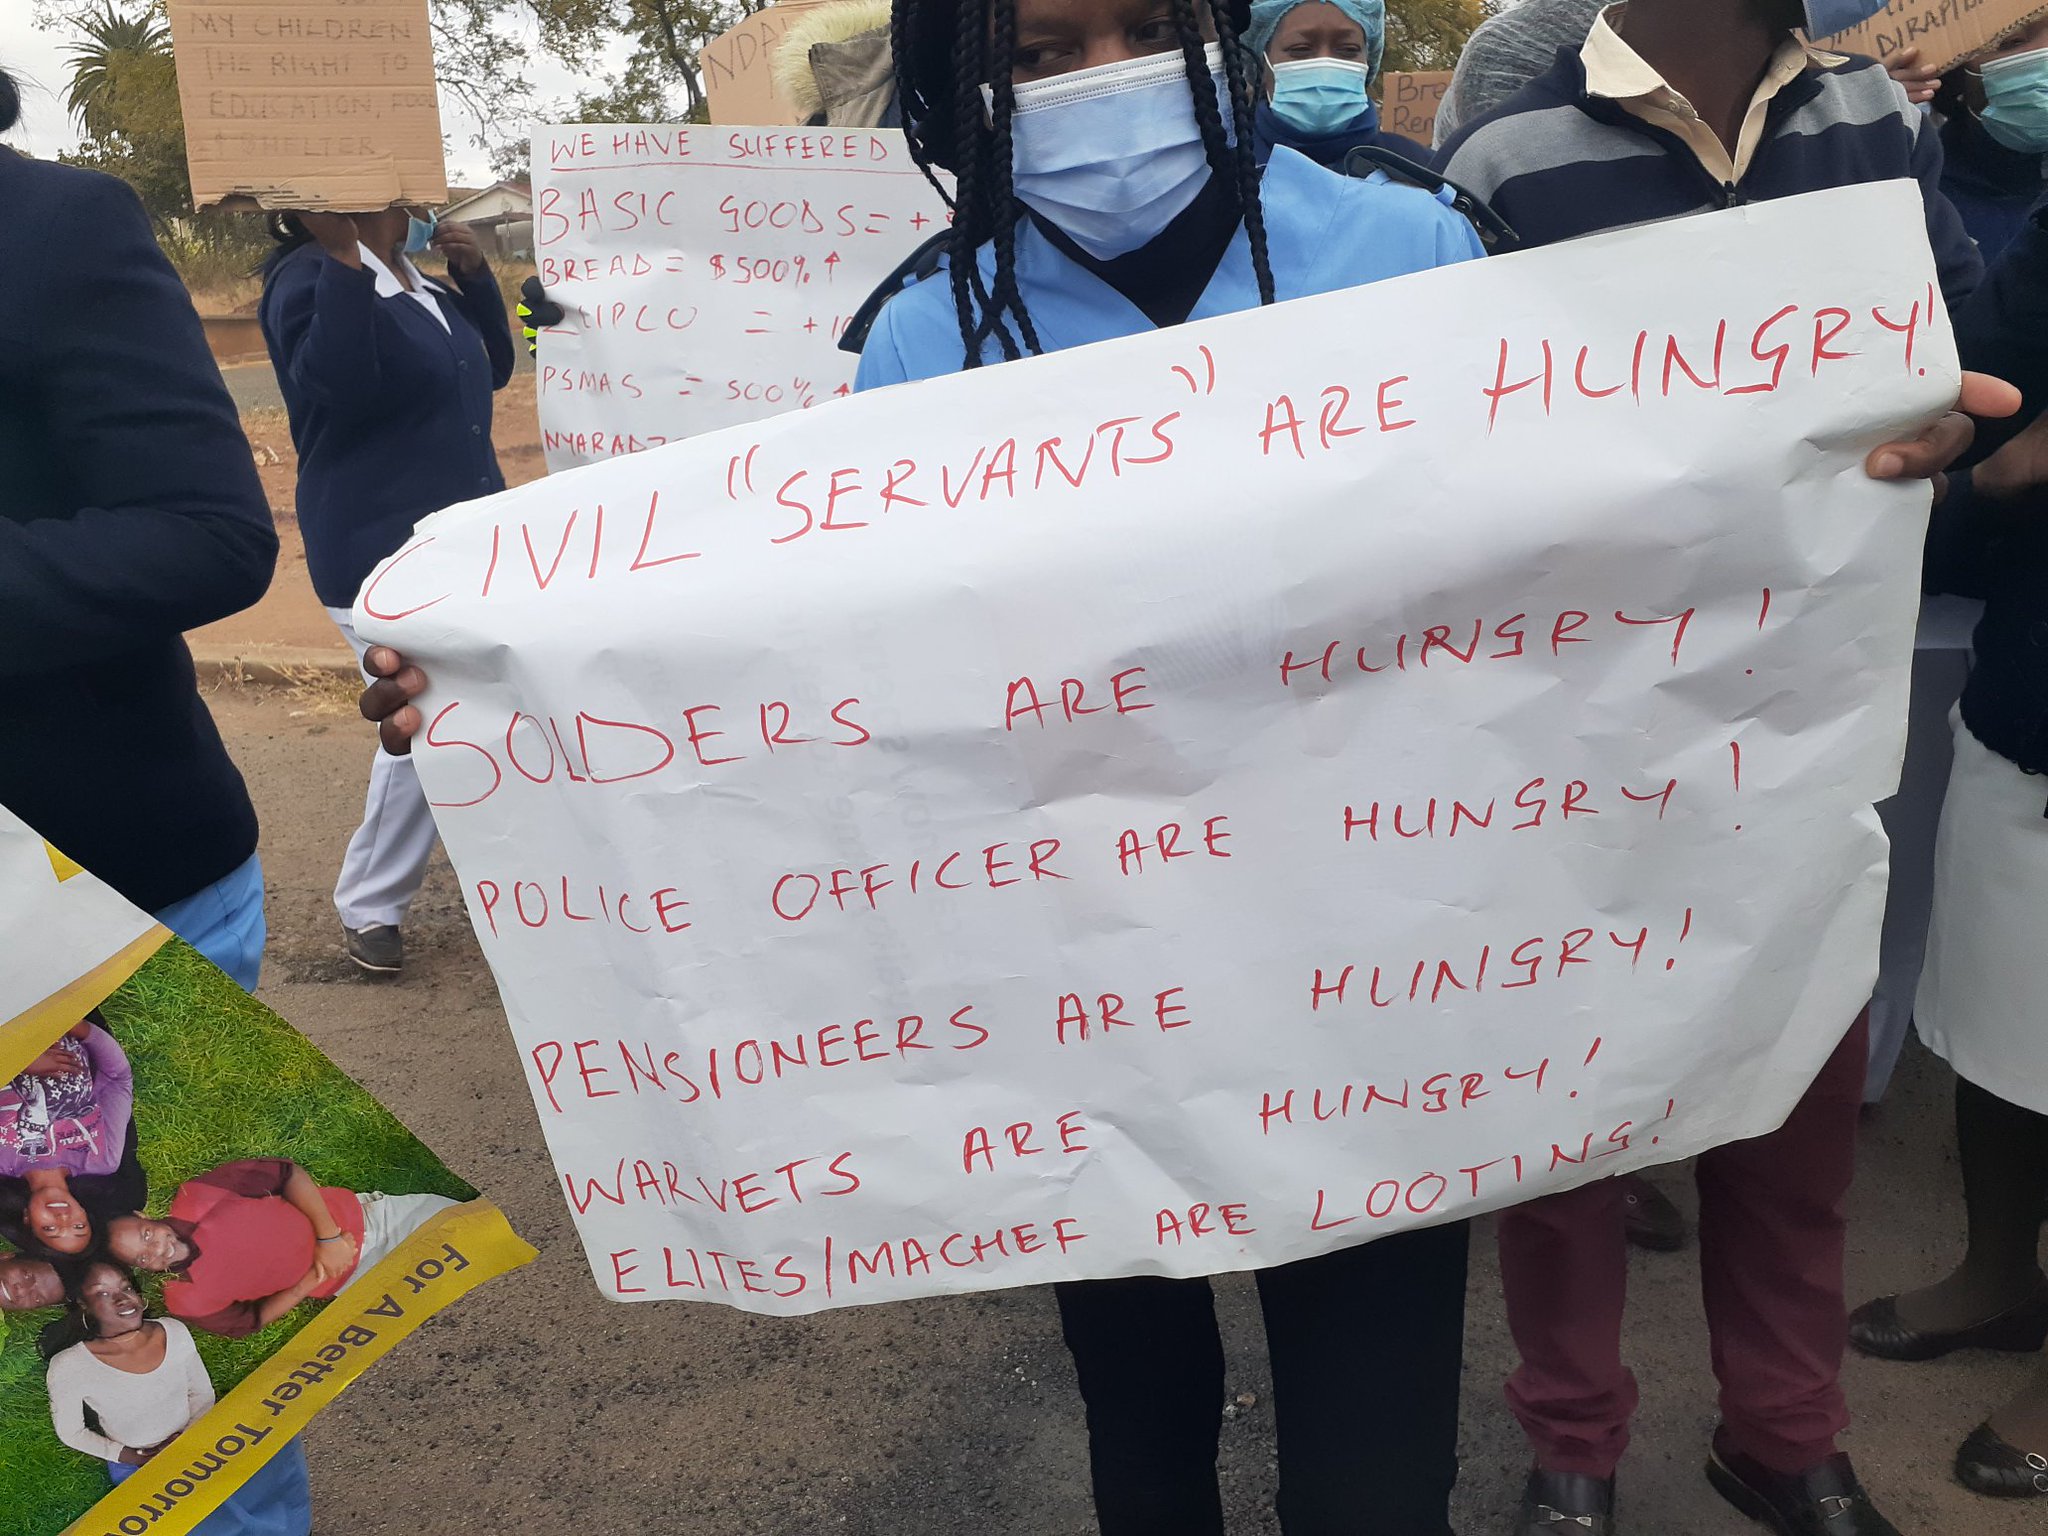 MY CHILDREN
THE RIGHT TO
EDUCATION, FOOD
SHELTER
WE HAVE SUFFERED
BASIC GOODS = +
BREAD = $500% ↑
ZUPCO = + 10
PSMAS = 500% ↑
NYARADZ
NDA
Bre
Ren
DIRAPID
CIVIL "SERVANTS" ARE HUNGRY!
SOLDERS ARE HUNGRY!
POLICE OFFICER ARE HUNGRY!
PENSIONEERS ARE HUNGRY!
WARVETS ARE HUNGRY!
ELITES/MACHEF ARE LOOTING!
For A Better Tomorro